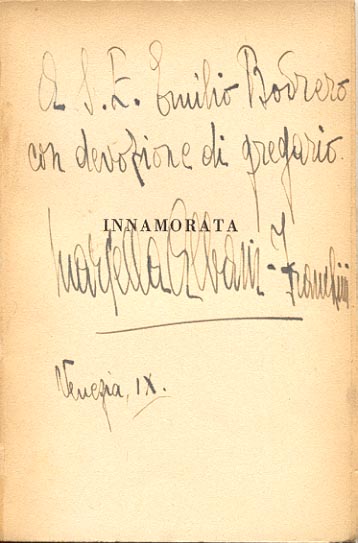 A S. E. Emilio Bodrero
con devozione di gregario.
INNAMORATA
Marcella Albani-Franchini
Venezia, IX.